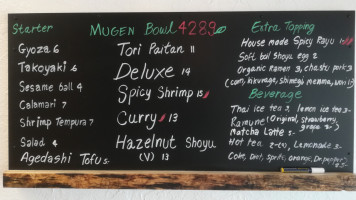 Starter
Gyoza 6
Takoyaki 6
Sesame ball 4
Calamari 7
Shrimp Tempura 7
Salad 4
Agedashi Tofu 5
MUGEN BOWL 4289
Tori Paitan 11
Deluxe 14
Spicy Shrimp 15
Curry 13
Hazelnut Shoyu
(V) 13
Extra Topping
House made Spicy Rayu
Soft boil Shoyu egg 2
Organic Ramen 3, chashu pork 3
(corn, kikurage, shimeji, menma, nori)
Beverage
Thai ice tea 3 lemon ice tea 3
Ramune (Original, strawberry,
grape 3)
Matcha Latte
Hot tea Lemonade
Coke, Diet, Sprite, orange, Dr. pepper